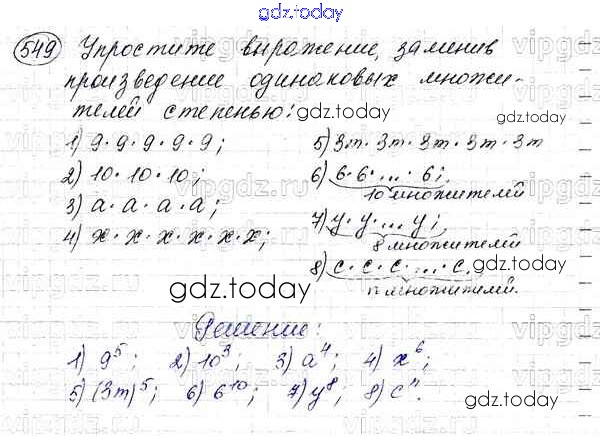 gdz.today
549 Упростите выражение, заменив
произведение одинаковых множи-
телей степенью:
gdz.today
1) 9·9·9·9·9;
5) 3m·3m·3m·3m·3m
2) 10·10·10;
6) 6·6·...·6;
10 множителей
3) a·a·a·a;
7) y·y·...y;
8 множителей
4) x·x·x·x·x·x;
8) c·c·c·...·c.
n множителей.
gdz.today
gdz.today
Решение:
1) 9⁵; 2) 10³; 3) a⁴; 4) x⁶;
5) (3m)⁵; 6) 6¹⁰; 7) y⁸; 8) cⁿ.
gdz.today